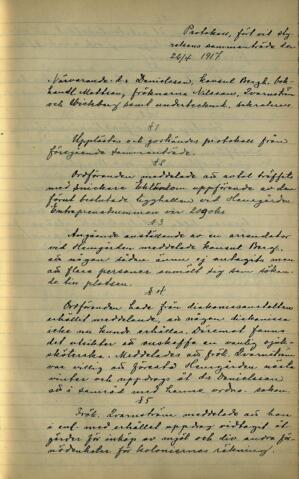 Protokoll, fört vid sty-
relsens sammanträde den
26/4 1917.
Närvarande: dr Danielsson, konsul Bergh, bok-
handl. Mattson, fröknarna Nilsson, Zvarnström
och Wickberg samt undertecknad, sekreterare
§ 1
Upplästes och godkändes protokoll från
föregående sammanträde.
§ 2
Ordföranden meddelade att avtal träffats
med snickare om uppförande av den
förut beslutade vid Hemgården
Entreprenadsumman var 2090 kr
§ 3
Angående anställande av en arrendator
vid Hemgården meddelade konsul Bergh,
att någon sådan ännu ej antagits men
att flera personer anmält sig som sökan-
de till platsen.
§ 4
Ordföranden hade från diakonissanstalten
erhållit meddelande, att någon diakonissa
icke nu kunde erhållas. Däremot fanns
det utsikter att anskaffa en vanlig sjuk-
sköterska. Meddelades att frök. Zvarnström
var villig att förestå Hemgården nästa
vinter och uppdrogs åt dr Danielsson
att i samråd med henne ordna saken.
§ 5
Frök. Zvarnström meddelade att hon
i enl. med erhållet uppdrag vidtagit åt-
gärder för inköp av mjöl och div. andra för-
nödenheter för koloniernas räkning.